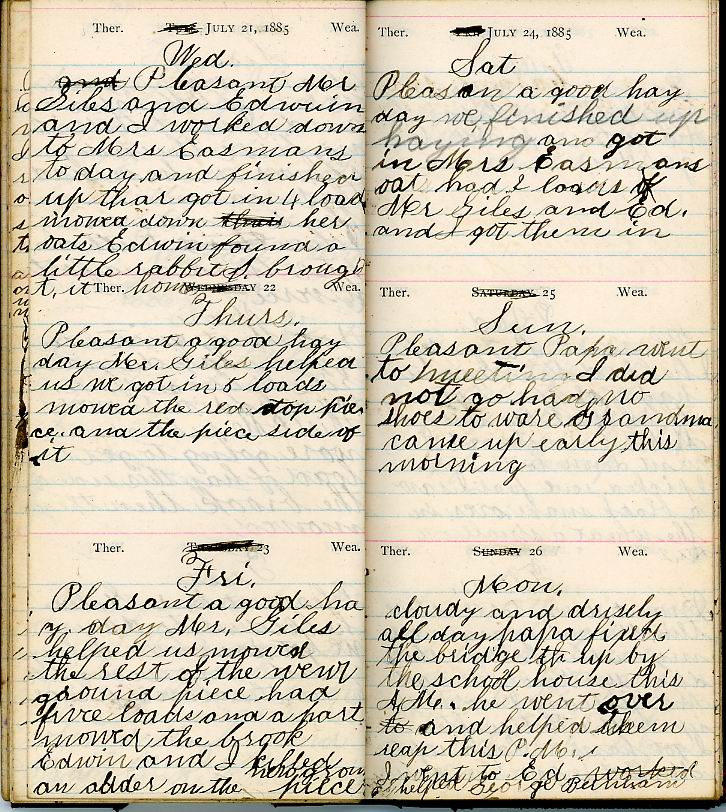 Ther. JULY 21, 1885 Wea.
Wed.
and Pleasant Mr
Giles and Edwin
and I worked down
to Mrs Easmans
to day and finished
up thar got in 4 load
mowed down her
oats Edwin found a
little rabbit I brough
t, it home
Ther. WEDNESDAY 22 Wea.
Thurs.
Pleasant a good hay
day Mr. Giles helped
us we got in 5 loads
mowed the red top pie
ce. and the piece side of
it
Ther. THURSDAY 23 Wea.
Fri.
Pleasant a good ha
y, day Mr. Giles
helped us mowed
the rest of the
ground piece had
five loads and a part
mowed the brook
Edwin and I killed
an adder on the new grown piece
Ther. JULY 24, 1885 Wea.
Sat
Pleasan a good hay
day we finished up
haying and got
in Mrs Easmans
oat had 2 loads of
Mr Giles and Ed.
and I got them in
Ther. SATURDAY 25 Wea.
Sun.
Pleasant Papa went
to meeting I did
not go had no
shoes to ware Grandma
came up early this
morning
Ther. SUNDAY 26 Wea.
Mon.
cloudy and drisely
all day papa fixed
the bridge th up by
the school house this
A.M. he went over
to and helped them
reap this P.M.
I went to Ed worked
& helped George